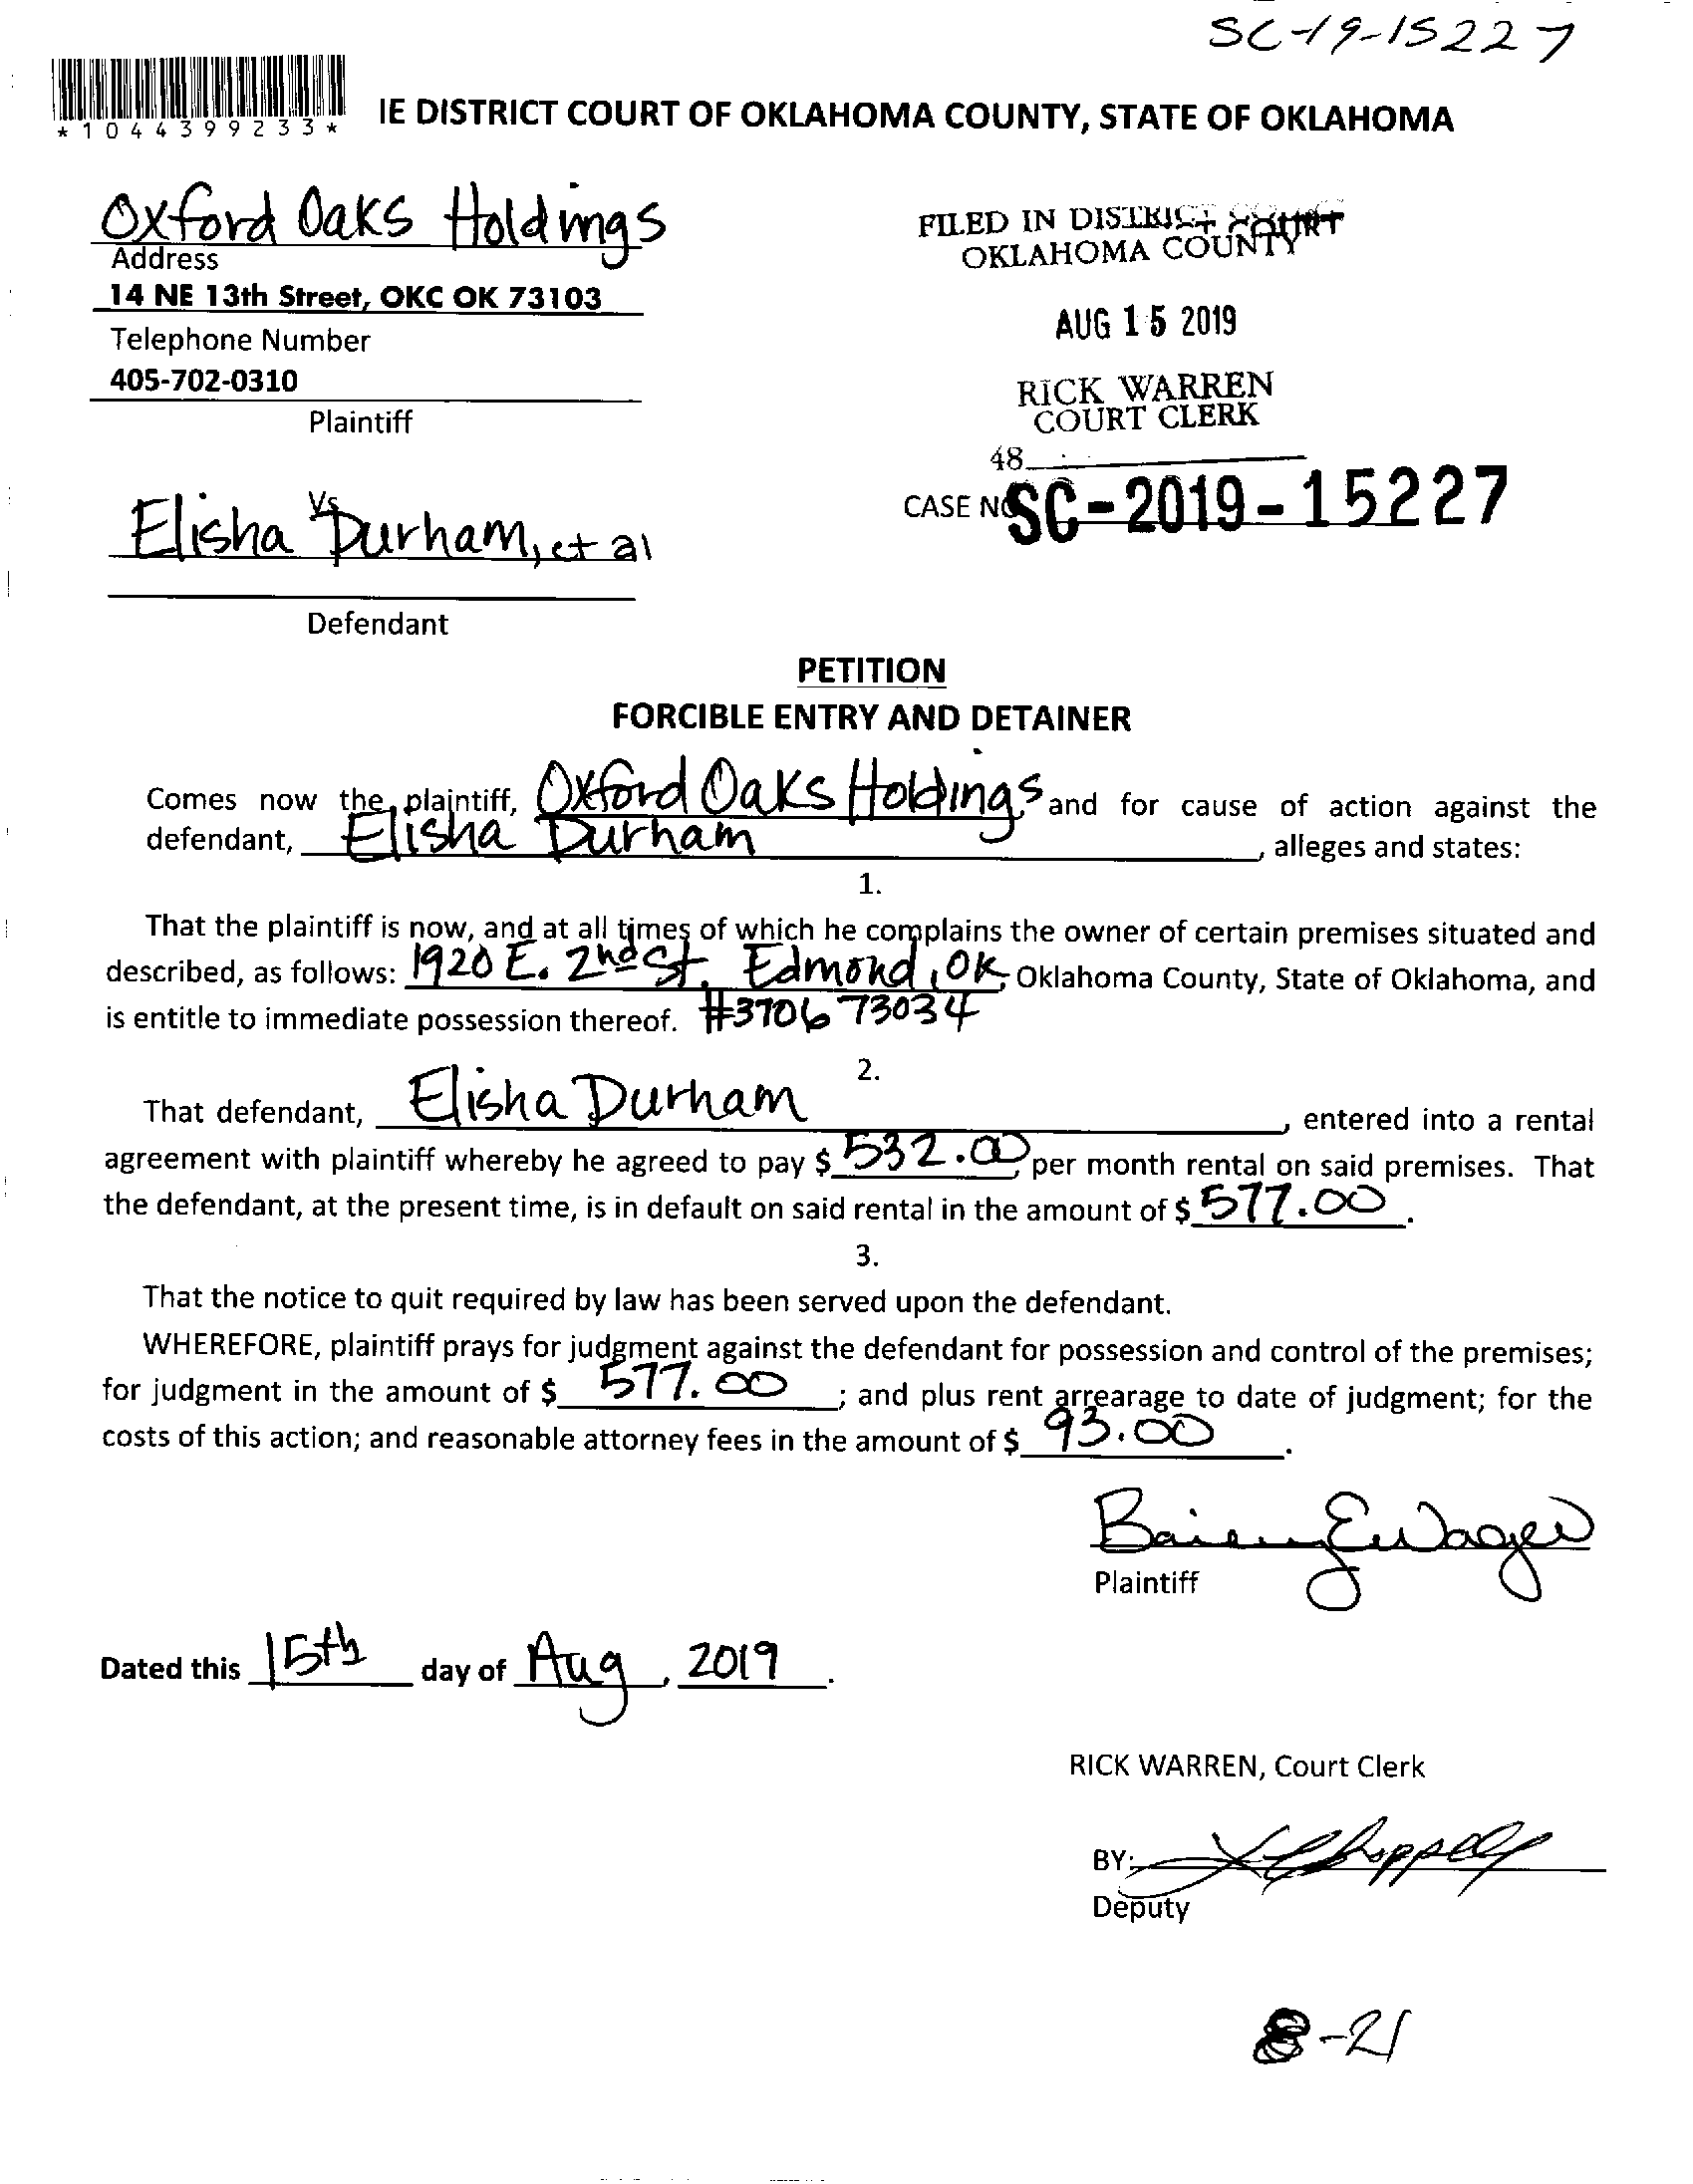 SC-19-15227
*1044399233*
IE DISTRICT COURT OF OKLAHOMA COUNTY, STATE OF OKLAHOMA
Oxford Oaks Holdings
Address
14 NE 13th Street, OKC OK 73103
Telephone Number
405-702-0310
Plaintiff
FILED IN DISTRICT COURT
OKLAHOMA COUNTY
AUG 15 2019
RICK WARREN
COURT CLERK
48
CASE NO SC-2019-15227
Vs
Elisha Durham, et al
Defendant
PETITION
FORCIBLE ENTRY AND DETAINER
Comes now the plaintiff, Oxford Oaks Holdings and for cause of action against the
defendant, Elisha Durham, alleges and states:
1.
That the plaintiff is now, and at all times of which he complains the owner of certain premises situated and
described, as follows: 1920 E. 2nd St. Edmond, OK, Oklahoma County, State of Oklahoma, and
is entitle to immediate possession thereof. #3706 73034
2.
That defendant, Elisha Durham, entered into a rental
agreement with plaintiff whereby he agreed to pay $ 532.00, per month rental on said premises. That
the defendant, at the present time, is in default on said rental in the amount of $ 577.00.
3.
That the notice to quit required by law has been served upon the defendant.
WHEREFORE, plaintiff prays for judgment against the defendant for possession and control of the premises;
for judgment in the amount of $ 577.00; and plus rent arrearage to date of judgment; for the
costs of this action; and reasonable attorney fees in the amount of $ 93.00.
Plaintiff
Dated this 15th day of Aug, 2019.
RICK WARREN, Court Clerk
BY:
Deputy
8-21